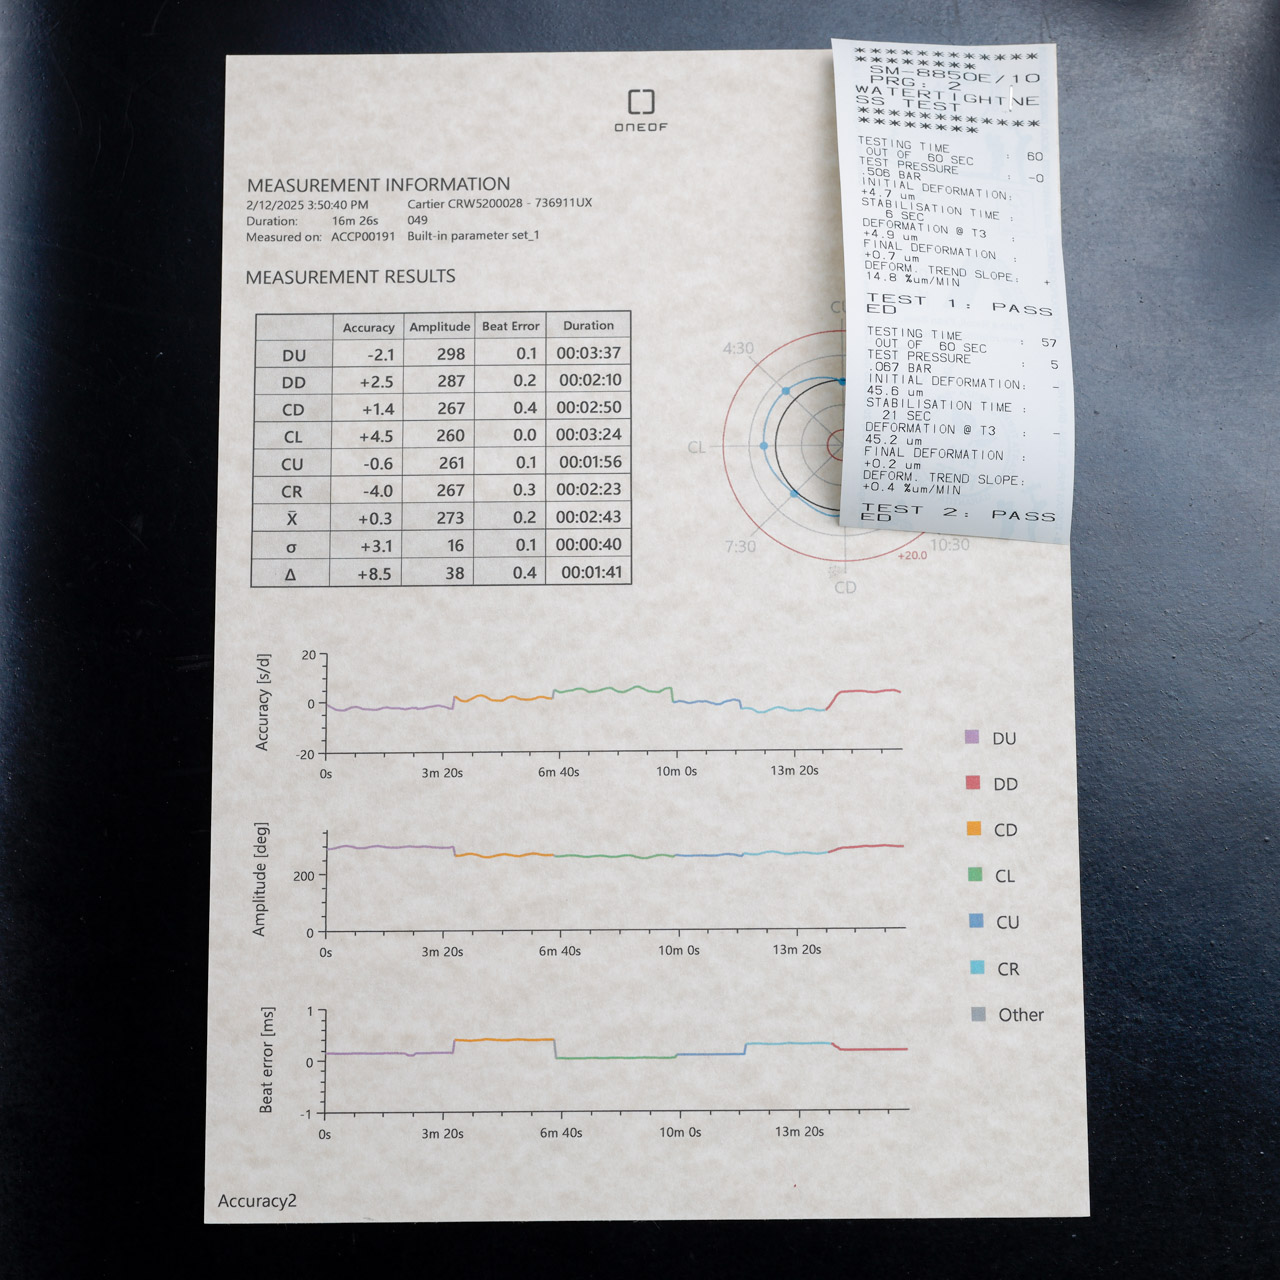 ONEOF
MEASUREMENT INFORMATION
2/12/2025 3:50:40 PM Cartier CRW5200028 - 736911UX
Duration: 16m 26s 049
Measured on: ACCP00191 Built-in parameter set_1
MEASUREMENT RESULTS
Accuracy Amplitude Beat Error Duration
DU -2.1 298 0.1 00:03:37
DD +2.5 287 0.2 00:02:10
CD +1.4 267 0.4 00:02:50
CL +4.5 260 0.0 00:03:24
CU -0.6 261 0.1 00:01:56
CR -4.0 267 0.3 00:02:23
X̄ +0.3 273 0.2 00:02:43
σ +3.1 16 0.1 00:00:40
Δ +8.5 38 0.4 00:01:41
4:30
CL
7:30
CD
+20.0
10:30
************
********
SM-8850E/10
PRG: 2
WATERTIGHTNE
SS TEST
************
********
TESTING TIME : 60
OUT OF 60 SEC
TEST PRESSURE : -0
.506 BAR
INITIAL DEFORMATION:
+4.7 um
STABILISATION TIME :
6 SEC
DEFORMATION @ T3 :
+4.9 um
FINAL DEFORMATION :
+0.7 um
DEFORM. TREND SLOPE: +
14.8 %um/MIN
TEST 1: PASS
ED
TESTING TIME : 57
OUT OF 60 SEC
TEST PRESSURE : 5
.067 BAR
INITIAL DEFORMATION: -
45.6 um
STABILISATION TIME :
21 SEC
DEFORMATION @ T3 : -
45.2 um
FINAL DEFORMATION :
+0.2 um
DEFORM. TREND SLOPE:
+0.4 %um/MIN
TEST 2: PASS
ED
Accuracy [s/d]
20
0
-20
0s 3m 20s 6m 40s 10m 0s 13m 20s
Amplitude [deg]
200
0
0s 3m 20s 6m 40s 10m 0s 13m 20s
Beat error [ms]
1
0
-1
0s 3m 20s 6m 40s 10m 0s 13m 20s
DU
DD
CD
CL
CU
CR
Other
Accuracy2